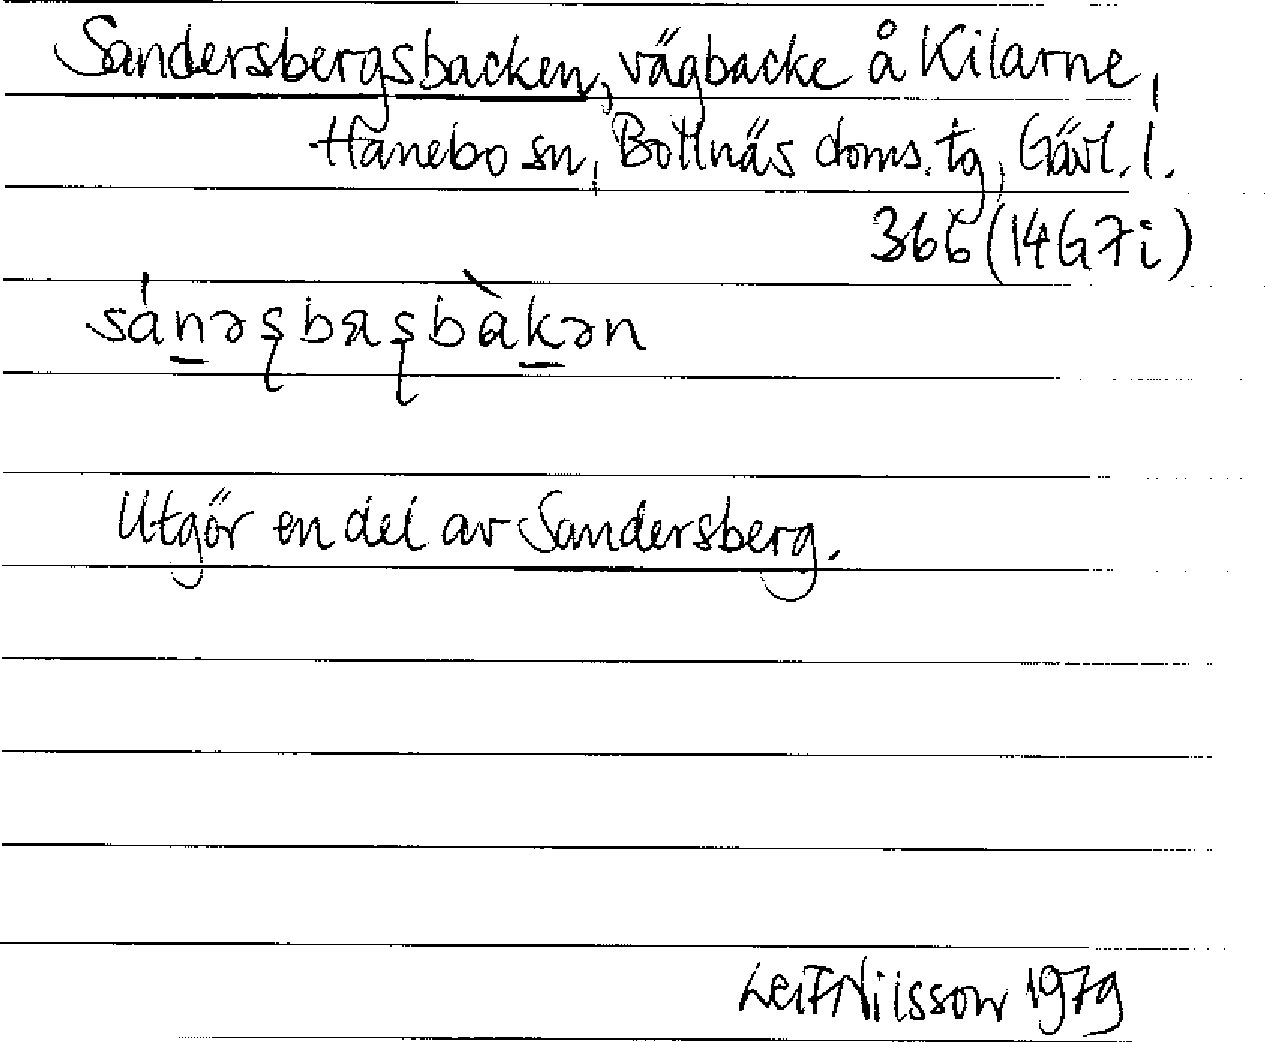 Sandersbergsbacken, vägbacke å Kilarne,
Hanebo sn, Bollnäs doms. tg, Gävl. l.
366 (14G7i)
sánəʂbaʂbàkən
Utgör en del av Sandersberg.
Leif Nilsson 1979